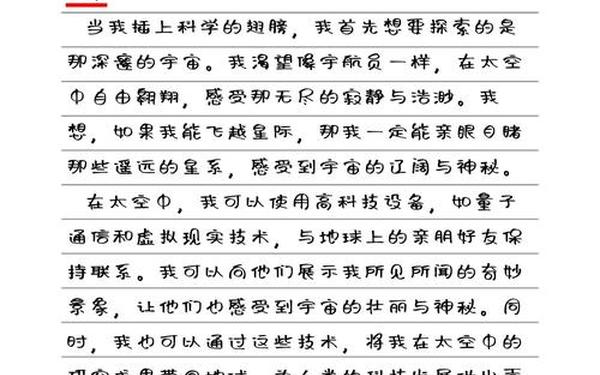 当我插上科学的翅膀，我首先想要探索的是
那深邃的宇宙。我渴望像宇航员一样，在太空
中自由翱翔，感受那无尽的寂静与浩渺。我
想，如果我能飞越星际，那我一定能亲眼目睹
那些遥远的星系，感受到宇宙的辽阔与神秘。
在太空中，我可以使用高科技设备，如量子
通信和虚拟现实技术，与地球上的亲朋好友保
持联系。我可以向他们展示我所见所闻的奇妙
景象，让他们也感受到宇宙的壮丽与神秘。同
时，我也可以通过这些技术，将我在太空中的